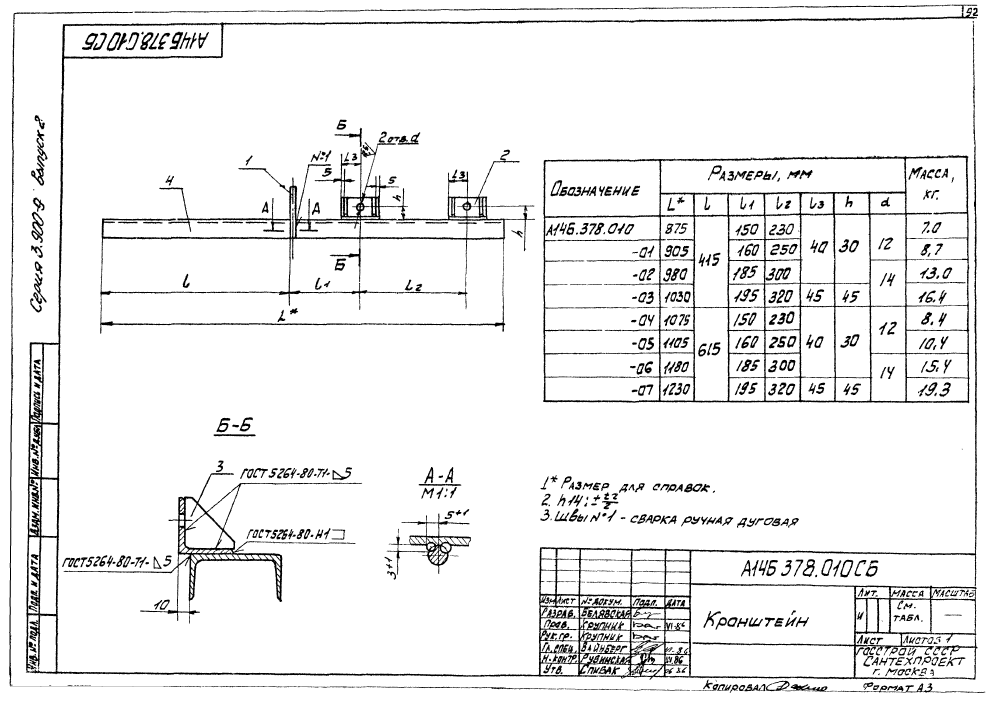 92
А14Б378.010СБ
Серия 3.900-9 Выпуск 8
Б
2 отв. d
№1
1
4
2
l3
5
5
l3
h
h
А
А
Б
l
l1
l2
L*
Обозначение Размеры, мм Масса, кг.
L* l l1 l2 l3 h d
А14Б.378.010 875 415 150 230 40 30 12 7.0
-01 905 160 250 8,7
-02 980 185 300 14 13.0
-03 1030 195 320 45 45 16.4
-04 1075 615 150 230 40 30 12 8.4
-05 1105 160 250 10.4
-06 1180 185 300 14 15.4
-07 1230 195 320 45 45 19.3
Б-Б
3
ГОСТ 5264-80-Т1-◺5
ГОСТ 5264-80-Н1
ГОСТ 5264-80-Т1-◺5
10
А-А
М1:1
5+1
3+1
1* Размер для справок.
2. h14; ± t2/2
3. Швы №1 - сварка ручная дуговая
Инв. № подл. Подп. и дата Взам. инв. № Инв. № дубл. Подпись и дата
А14Б 378.010СБ
Кранштейн
Изм Лист № докум. Подп. Дата
Разраб. Белявская
Пров. Крупник VI-86
Рук. гр. Крупник
Гл. спец. Вайнберг
Н.контр. Рубинская
Утв. Спивак
Лит. Масса Масштаб
И См. табл. —
Лист Листов 1
Госстрой СССР
Сантехпроект
г. Москва
Копировал
Формат А3